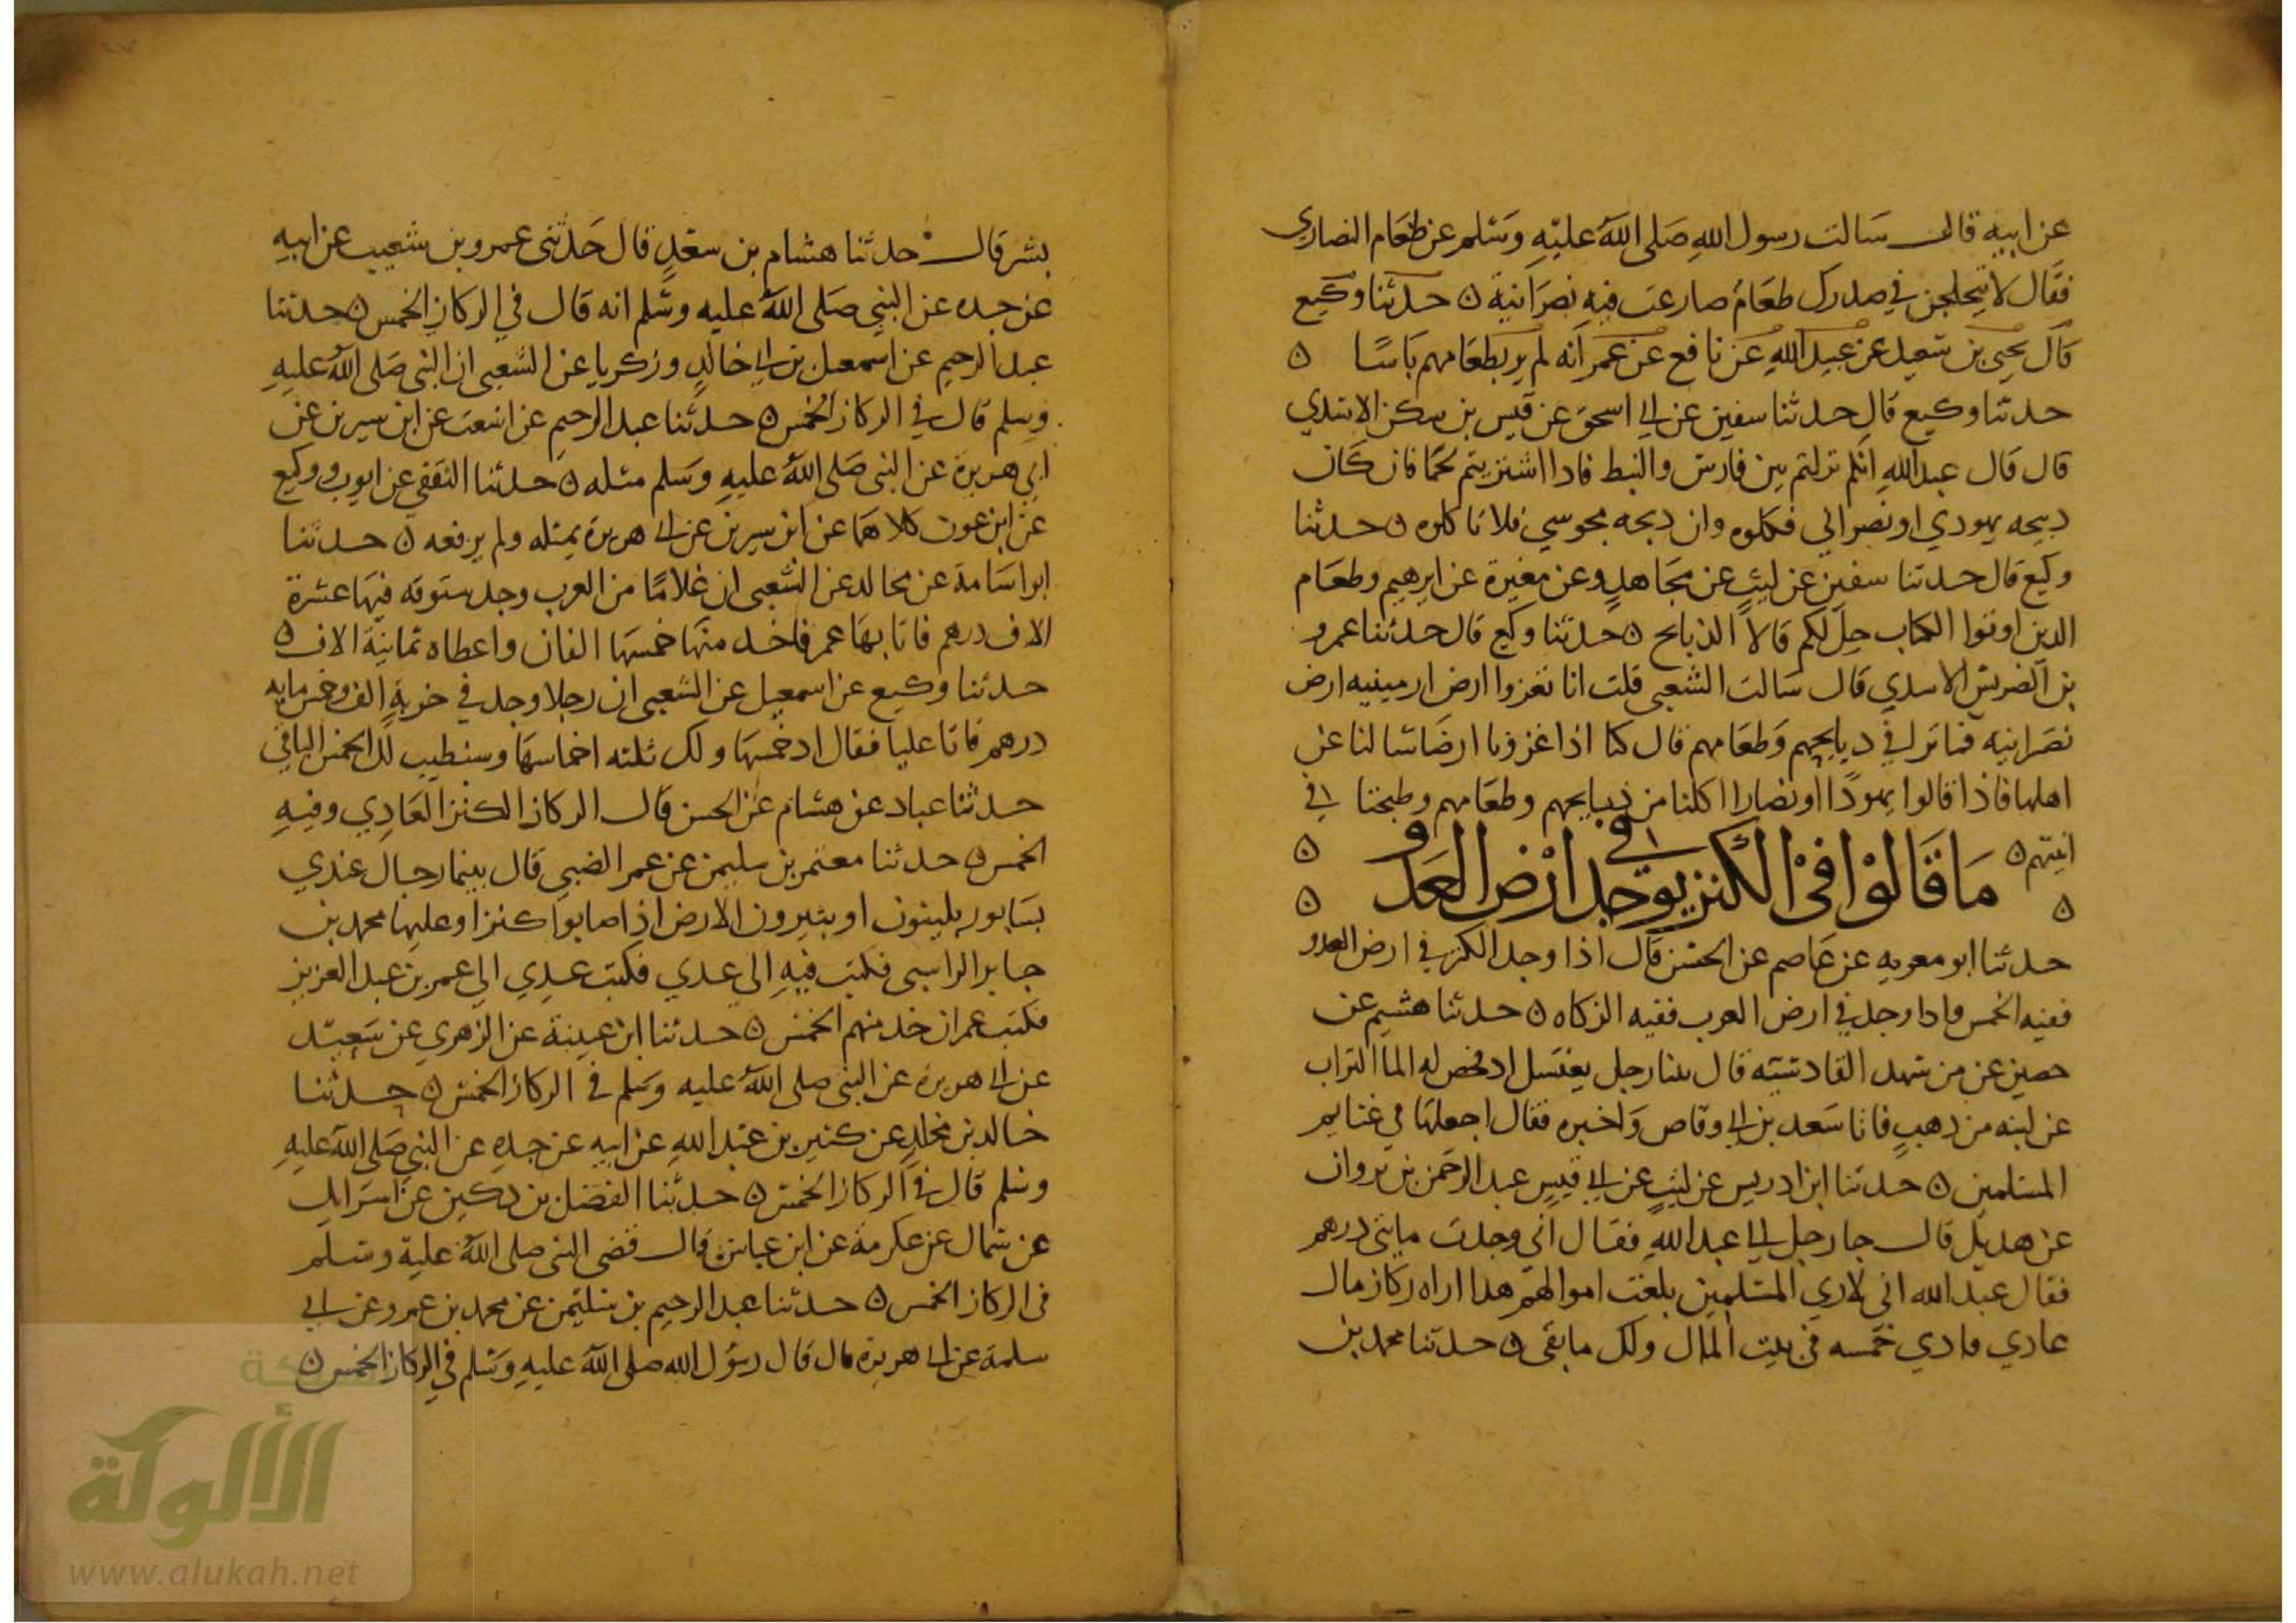 عن ابيه قال سالت رسول الله صَلى اللهُ عليْهِ وَسَلم عن طعَام النصارى
فقال لا يتحلجن في صدرك طعَامٌ ضارعت فيه نصرَانية ن حدثنا وكيع
قال يحيى بن سَعيد عن عبيد اللهِ عن نافع عن عمر انه لم ير بطعَامهم باسًا ن
حدثنا وكيع قال حدثنا سفين عن ابي اسحق عن قيس بن سكن الاسدي
قال قال عبد اللهِ انكم نزلتم بين فارس والنبط فاذا اشتريتم لحمًا فان كان
ذبيحه يهودي او نصراني فكلوه وان ذبحه مجوسي فلا تاكلوه ن حدثنا
وكيع قال حدثنا سفين عن ليث عن مجَاهدٍ وعن مغيرة عن ابرهيم وطعَام
الذين اوتوا الكتاب حِل لكم قالا الذبايح ن حدثنا وكيع قال حدثنا عمرو
بن الضريس الاسدي قال سَالت الشعبي قلت انا نغزوا ارض ارمينيه ارض
نصَرانيه فما ترى في ذبايحهم وَطعَامهم قال كنا اذا غزونا ارضا سالنا عن
اهلها فاذا قالوا يهودًا او نصارا اكلنا من ذبايحهم وطعَامهم وطبخنا في
انيتهم ن مَا قَالوْا فىْ الكنز يوجد في ارْض العَدو ن
ن ن
حدثنا ابو معويه عن عَاصم عن الحسَن قال اذا وجد الكنز في ارض العدو
ففيه الخمس واذا وجد في ارض العرب ففيه الزكاه ن حدثنا هشيم عن
حصين عن من شهد القادسيَّه قال بينا رجل يغتسل اذ فحص له الما التراب
عن لبنه من ذهبٍ فاتا سَعد بن ابي وقاص وَاخبره فقال اجعلهَا في غنايم
المسلمين ن حدثنا ابن ادريس عن ليثٍ عن ابي قيسٍ عبد الرحمن بن ثروان
عن هذيل قال جا رجل الى عبد اللهِ فقال اني وجدت مايتى درهم
فقال عبد الله اني لا ارى المسلمين بلغت اموالهم هذا اراه ركاز مال
عادي فادي خمسه في بيت المال ولك ما بقى ن حدثنا محمد بن
بشر قال حدثنا هشام بن سعْدٍ قال حَدثنى عمرو بن شعيب عن ابيهِ
عن جده عن النبي صَلى اللهُ عليه وسَلم انه قال في الركاز الخمس ن حدثنا
عبد الرحيم عن اسمعيل بن ابي خالدٍ وزكريا عن الشعبى ان النبى صَلى اللهُ عليهِ
وسلم قال في الركاز الخمس ن حدثنا عبد الرحيم عن اشعث عن ابن سيرين عن
ابي هريرة عن النبى صَلى اللهُ عليهِ وسَلم مثله ن حدثنا الثقفي عن ايوب ووكيع
عن ابن عون كلاهمَا عن ابن سيرين عن ابي هريرة بمثله ولم يرفعه ن حدثنا
ابو اسَامة عن مجالد عن الشعبى ان غلامًا من العرب وجد ستوقه فيهَا عشرة
الاف درهم فاتا بهَا عمر فاخذ منهَا خمسَهَا الفان واعطاه ثمانيَة الاف ن
حدثنا وكيع عن اسمعيل عن الشعبى ان رجلا وجد في خربةٍ الف وخمس مايه
درهم فاتا عليا فقال اد خمسَهَا ولك ثلثه اخماسهَا وسنطيب لك الخمس الباقي
حدثنا عباد عن هشام عن الحسن قال الركاز الكنز العَادِي وفيهِ
الخمس ن حدثنا معتمر بن سليمن عن عمر الضبي قال بينما رجال عندي
بسَابور يلينون او يثيرون الارض اذ اصابوا كنزا وعليها محمد بن
جابر الراسبى فكتب فيهِ الى عدي فكتب عدِي الى عمر بن عبد العزيز
فكتب عمر ان خذ منهم الخمس ن حدثنا ابن عيينة عن الزهري عن سَعيد
عن ابي هريرة عن النبى صلى اللهُ عليه وَسَلم في الركاز الخمس ن حدثنا
خالد بن مخلدٍ عن كثير بن عبد اللهِ عن ابيه عن جدهِ عن النبي صَلى اللهُ عليهِ
وسلم قال في الركاز الخمس ن حدثنا الفضل بن دكين عن اسرَايل
عن سماك عن عكرمة عن ابن عباس قال قضى النبى صلى اللهُ عليهِ وسَلم
في الركاز الخمس ن حدثنا عبد الرحيم بن سليمن عن محمد بن عمرو عن ابي
سلمة عن ابي هريرة قال قال رسُول الله صلى اللهُ عليهِ وَسَلم في الركاز الخمس ن
شبكة
الألوكة
www.alukah.net